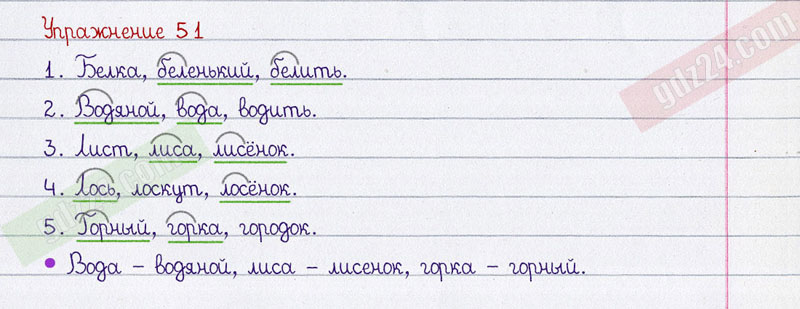 Упражнение 51
1. Белка, беленький, белить.
2. Водяной, вода, водить.
3. Лист, лиса, лисёнок.
4. Лось, лоскут, лосёнок.
5. Горный, горка, городок.
• Вода – водяной, лиса – лисенок, горка – горный.
gdz24.com
gdz24.com